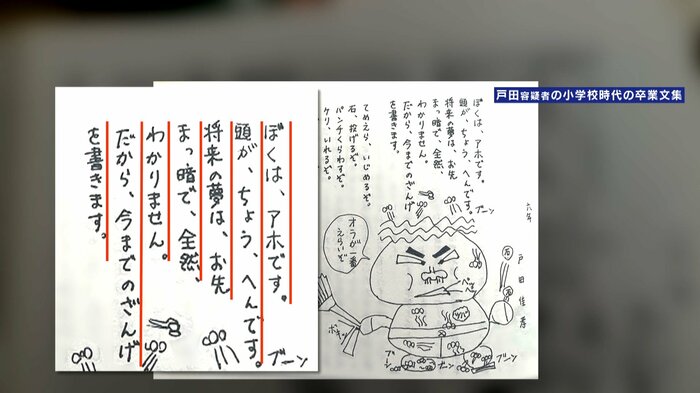 戸田容疑者の小学校時代の卒業文集
ぼくは、アホです。
頭が、ちょう、へんです。
将来の夢は、お先
まっ暗で、全然、
わかりません。
だから、今までのざんげ
を書きます。
ブーン
六年
戸田佳孝
ぼくは、アホです。
頭が、ちょう、へんです。
将来の夢は、お先
まっ暗で、全然、
わかりません。
だから、今までのざんげ
を書きます。
てめえら、いじめるぞ。
石、投げるぞ。
パンチくらわすぞ。
ケリ、いれるぞ。
ブーン
オラが一番
えらいぞ
石
石
ペッ
ポキッ
ブーン
ブーン